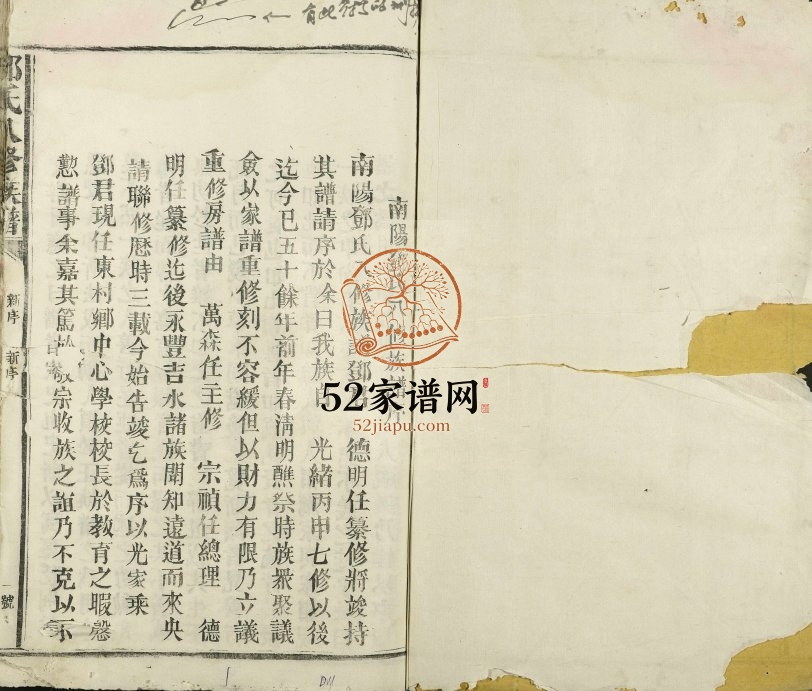 有此
南陽 八修族譜
南陽鄧氏 修族 鄧 德明任纂修將竣持
其譜請序於余曰我族自 光緒丙申七修以後
迄今已五十餘年前年春清明醮祭時族衆聚議
僉以家譜重修刻不容緩但以財力有限乃立議
重修房譜由 萬森任主修 宗禎任總理 德
明任纂修迄後永豐吉水諸族聞知遠道而來央
請聯修歷時三載今始告竣乞爲序以光家乘
鄧君現任東村鄉中心學校校長於教育之暇慇
懃譜事余嘉其篤 敬宗收族之誼乃不克以不
氏八修族譜
新序
新序
一號
52家谱网
52jiapu.com